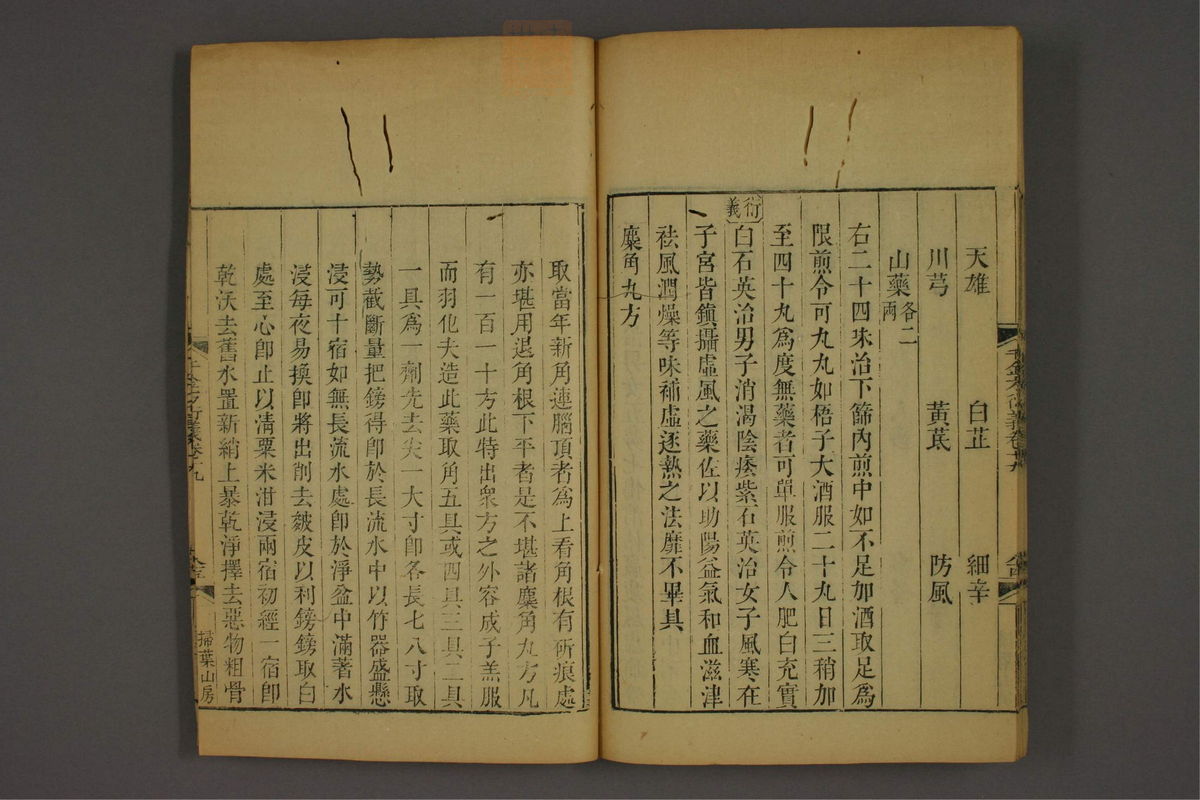 天雄 白芷 細辛
川芎 黃茋 防風
山藥各二兩
右二十四味治下篩內煎中如不足加酒取足爲
限煎令可丸丸如梧子大酒服二十丸日三稍加
至四十丸爲度無藥者可單服煎令人肥白充實
衍義白石英治男子消渴陰痿紫石英治女子風寒在
子宮皆鎮攝虛風之藥佐以助陽益氣和血滋津
祛風潤燥等味補虛逐熱之法靡不畢具
麋角丸方
取當年新角連腦頂者爲上看角根有斫痕處
亦堪用退角根下平者是不堪諸麋角丸方凡
有一百一十方此特出衆方之外容成子羔服
而羽化夫造此藥取角五具或四具三具二具
一具爲一劑先去尖一大寸卽各長七八寸取
勢截斷量把鎊得卽於長流水中以竹器盛懸
浸可十宿如無長流水處卽於淨盆中滿著水
浸每夜易換卽將出削去皴皮以利鎊鎊取白
處至心卽止以清粟米泔浸兩宿初經一宿卽
乾沃去舊水置新絹上暴乾淨擇去惡物粗骨
千金方衍義卷十九
掃葉山房